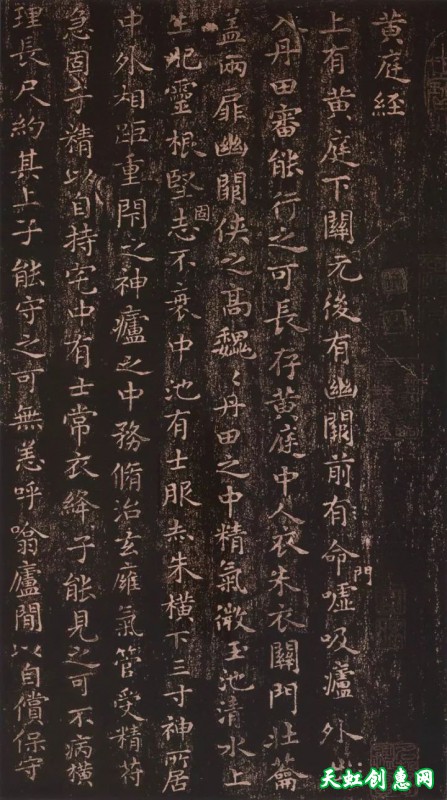 黄庭經
上有黄庭下關元後有幽闕前有命門噓吸廬外出
入丹田審能行之可長存黄庭中人衣朱衣關門壯蘥
蓋兩扉幽闕俠之高魏〻丹田之中精氣微玉池清水上
生肥靈根堅固志不衰中池有士服赤朱横下三寸神所居
中外相距重閇之神廬之中務脩治玄廱氣管受精苻
急固子精以自持宅中有士常衣絳子能見之可不病横
理長尺約其上子能守之可無恙呼噏廬間以自償保守
天虹创惠网